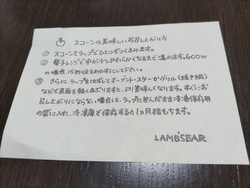 スコーンの美味しいお召し上がり方
① スコーンをラップでひとつずつくるみます。
② 電子レンジで中が少しやわらかくなるまで温めます。600w
の場合、15秒位をめやすにして下さい。
③ さらに、ラップをはずしてオーブントースターかグリル(焼き網)
などで表面を軽くあぶりますと、より美味しくなります。すぐにお
召し上がりにならない場合は、ラップに包んだまま冷凍保存用
の袋に入れ、冷凍庫で保存すると1ヵ月程もちます。
LAMB'S EAR